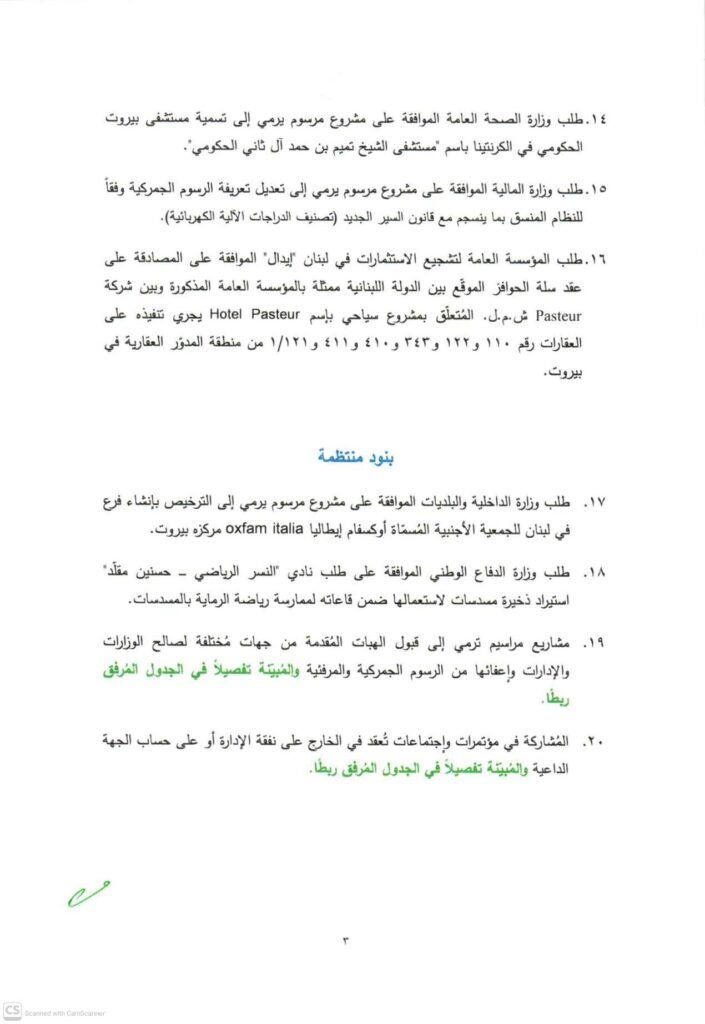 ١٤. طلب وزارة الصحة العامة الموافقة على مشروع مرسوم يرمي إلى تسمية مستشفى بيروت
الحكومي في الكرنتينا باسم "مستشفى الشيخ تميم بن حمد آل ثاني الحكومي".
١٥. طلب وزارة المالية الموافقة على مشروع مرسوم يرمي إلى تعديل تعريفة الرسوم الجمركية وفقاً
للنظام المنسق بما ينسجم مع قانون السير الجديد (تصنيف الدراجات الآلية الكهربائية).
١٦. طلب المؤسسة العامة لتشجيع الاستثمارات في لبنان "إيدال" الموافقة على المصادقة على
عقد سلة الحوافز الموقّع بين الدولة اللبنانية ممثلة بالمؤسسة العامة المذكورة وبين شركة
Pasteur ش.م.ل. المُتعلّق بمشروع سياحي بإسم Hotel Pasteur يجري تنفيذه على
العقارات رقم ١١٠ و١٢٢ و٣٤٣ و٤١٠ و٤١١ و١/١٢١ من منطقة المدوّر العقارية في
بيروت.
بنود منتظمة
١٧. طلب وزارة الداخلية والبلديات الموافقة على مشروع مرسوم يرمي إلى الترخيص بإنشاء فرع
في لبنان للجمعية الأجنبية المُسمّاة أوكسفام إيطاليا oxfam italia مركزه بيروت.
١٨. طلب وزارة الدفاع الوطني الموافقة على طلب نادي "النسر الرياضي – حسنين مقلّد"
استيراد ذخيرة مسدسات لاستعمالها ضمن قاعاته لممارسة رياضة الرماية بالمسدسات.
١٩. مشاريع مراسيم ترمي إلى قبول الهبات المُقدمة من جهات مُختلفة لصالح الوزارات
والإدارات وإعفائها من الرسوم الجمركية والمرفئية والمُبيّنة تفصيلاً في الجدول المُرفق
ربطًا.
٢٠. المُشاركة في مؤتمرات وإجتماعات تُعقد في الخارج على نفقة الإدارة أو على حساب الجهة
الداعية والمُبيّنة تفصيلاً في الجدول المُرفق ربطًا.
٣
CS Scanned with CamScanner